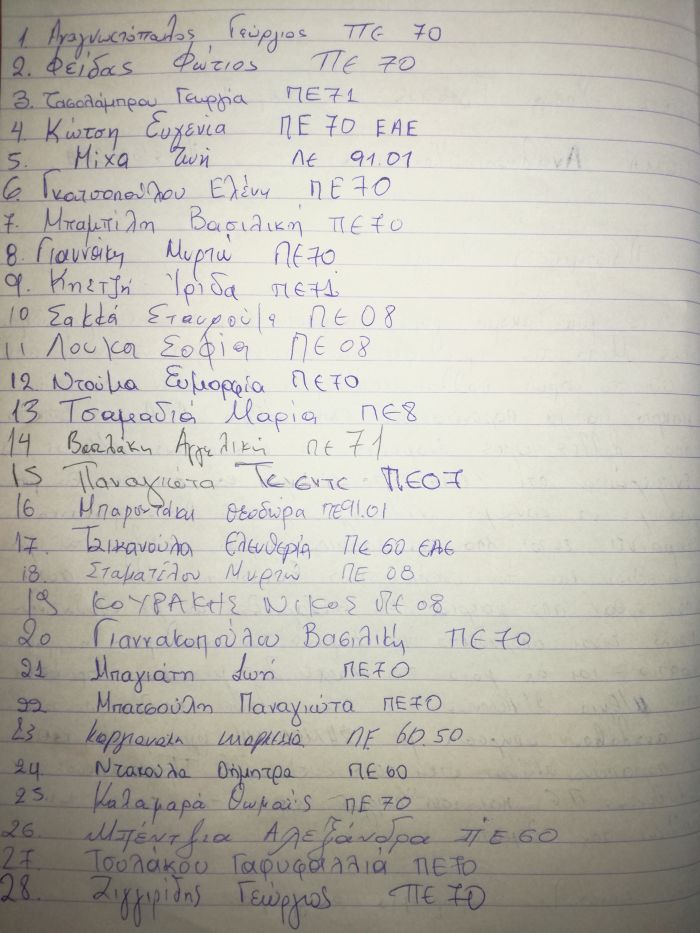 1 Αναγνωστόπουλος Γεώργιος ΠΕ 70
2. Φείδας Φώτιος ΠΕ 70
3. Τασολάμπρου Γεωργία ΠΕ71
4. Κώτση Ευγενία ΠΕ 70 ΕΑΕ
5. Μίχα Ζωή ΠΕ 91.01
6. Γκατσοπούλου Ελένη ΠΕ70
7. Μπαμπίλη Βασιλική ΠΕ70
8. Μυρτώ ΠΕ70
9. Ίριδα ΠΕ71
10 Σακκά Σταυρούλα ΠΕ 08
11 Λουκα Σοφία ΠΕ 08
12. Ντούμα Ευμορφία ΠΕ70
13 Τσαμαδιά Μαρία ΠΕ8
14 Βασιλάκη Αγγελική ΠΕ 71
15 Παναγιώτα ΠΕ07
16 Θεοδώρα ΠΕ91.01
17. Τσικανούλα Ελευθερία ΠΕ 60 ΕΑΕ
18. Σταματέλου Μυρτώ ΠΕ 08
19 ΚΟΥΡΑΚΗΣ ΝΙΚΟΣ ΠΕ 08
20 Γιαννακοπούλου Βασιλική ΠΕ70
21 Μπαγιάτη Ζωή ΠΕ70
22 Μπατσούλη Παναγιώτα ΠΕ70
23 ΠΕ 60.50
24. Ντακουλα Δήμητρα ΠΕ60
25. Καλαμαρά Θωμαΐς ΠΕ 70
26. Μπέντζια Αλεξάνδρα ΠΕ60
27. Τσουλάκου Γαρυφαλλιά ΠΕ70
28. Ζιγγιρίδης Γεώργιος ΠΕ 70